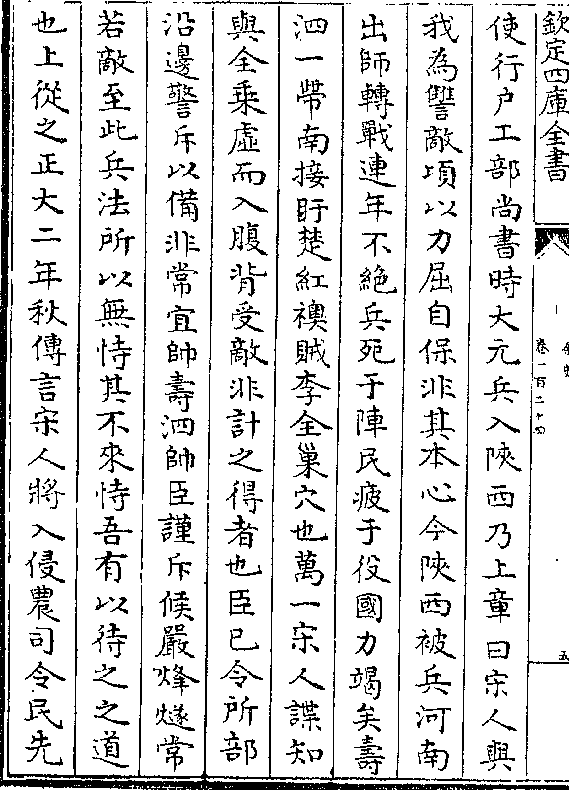 欽定四庫全書
金史
卷一百二十四
五
使行户工部尚書時大元兵入陝西乃上章曰宋人與
我為讐敵項以力屈自保非其本心今陝西被兵河南
出師轉戰連年不絶兵死于陣民疲于役國力竭矣壽
泗一帶南接盱楚紅襖賊李全巢穴也萬一宋人諜知
與全乘虛而入腹背受敵非計之得者也臣已令所部
沿邊警斥以備非常宜帥壽泗帥臣謹斥候嚴烽燧常
若敵至此兵法所以無恃其不來恃吾有以待之之道
也上從之正大二年秋傳言宋人將入侵農司令民先